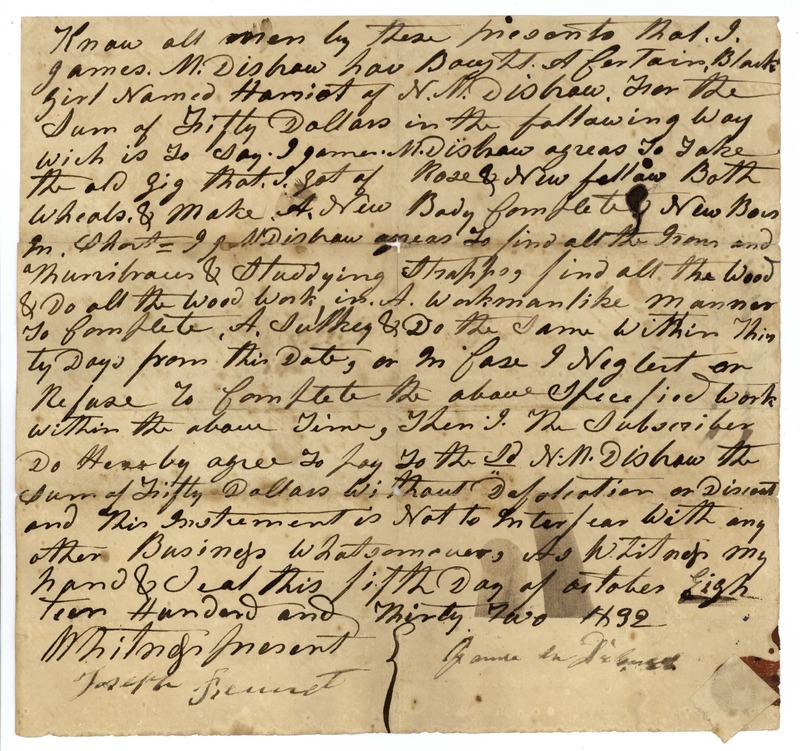 Know all men by these presents that. I.
James. M. Disbrow hav Bought. A Certain, Black
Girl Named Harriot of N. M. Disbrow, For the
Sum of Fifty Dollars in the following Way
wich is To Say. I James. M. Disbrow agreas To Take
the old Gig that. I. got of Rose & New fellow Both
Wheals. & Make A. New Body Complete, New Bows
In. Short = I J. M Disbrow agreas To find all the Irons and
& Studdying Strapps, find all the Wood
& Do all the Wood Work, in. A. Workmanlike manner
To Complete, A. Sulkey & Do the Same Within Thir
ty Days from this Date, or In Case I Neglect or
Refuse To Complete the above Specefied Work
within the above Time, Then. I. The Subscriber
Do Hereby agree To pay To the Sd N. M. Disbrow the
Sum of Fifty Dollars Without Defolcation or Discount
and this Instrement is Not to Interfear With any
other Business Whatsomaver, As Whitness my
hand & Seal this fifth Day of october Eigh
teen Hunderd and Thirty Two 1832
Whitness present
Joseph